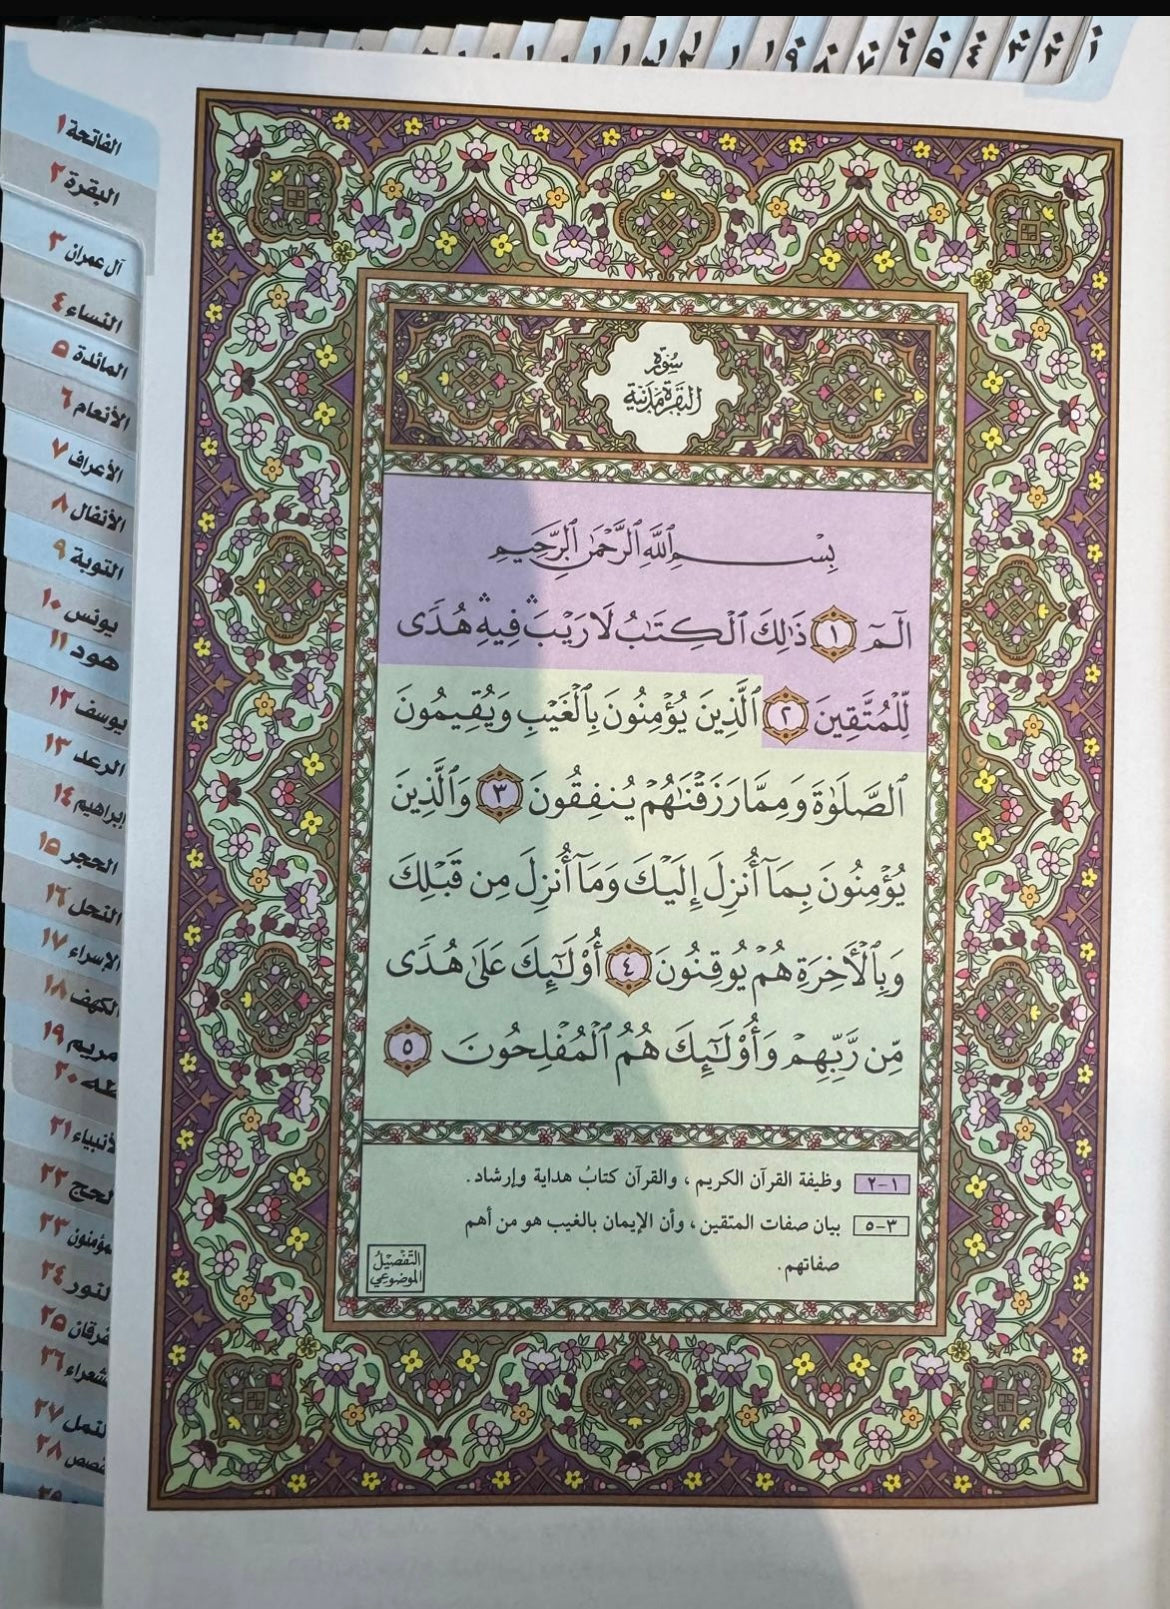 الفاتحة ١
البقرة ٢
آل عمران ٣
النساء ٤
المائدة ٥
الأنعام ٦
الأعراف ٧
الأنفال ٨
التوبة ٩
يونس ١٠
هود ١١
يوسف ١٢
الرعد ١٣
إبراهيم ١٤
الحجر ١٥
النحل ١٦
الإسراء ١٧
الكهف ١٨
مريم ١٩
طه ٢٠
لأنبياء ٢١
لحج ٢٢
مؤمنون ٢٣
لنور ٢٤
فرقان ٢٥
شعراء ٢٦
لنمل ٢٧
قصص ٢٨
٢٩
سُورَةُ
البَقَرَة مَدَنية
بِسْمِ ٱللَّهِ ٱلرَّحْمَٰنِ ٱلرَّحِيمِ
الٓمٓ ١ ذَٰلِكَ ٱلْكِتَٰبُ لَا رَيْبَ ۛ فِيهِ ۛ هُدًى
لِّلْمُتَّقِينَ ٢ ٱلَّذِينَ يُؤْمِنُونَ بِٱلْغَيْبِ وَيُقِيمُونَ
ٱلصَّلَوٰةَ وَمِمَّا رَزَقْنَٰهُمْ يُنفِقُونَ ٣ وَٱلَّذِينَ
يُؤْمِنُونَ بِمَآ أُنزِلَ إِلَيْكَ وَمَآ أُنزِلَ مِن قَبْلِكَ
وَبِٱلْأَخِرَةِ هُمْ يُوقِنُونَ ٤ أُوْلَٰٓئِكَ عَلَىٰ هُدًى
مِّن رَّبِّهِمْ وَأُوْلَٰٓئِكَ هُمُ ٱلْمُفْلِحُونَ ٥
١-٢ وظيفة القرآن الكريم ، والقرآن كتابُ هداية وإرشاد .
٣-٥ بيان صفات المتقين ، وأن الإيمان بالغيب هو من أهم
صفاتهم .
التَّفْصِيْلُ
الموضوعي